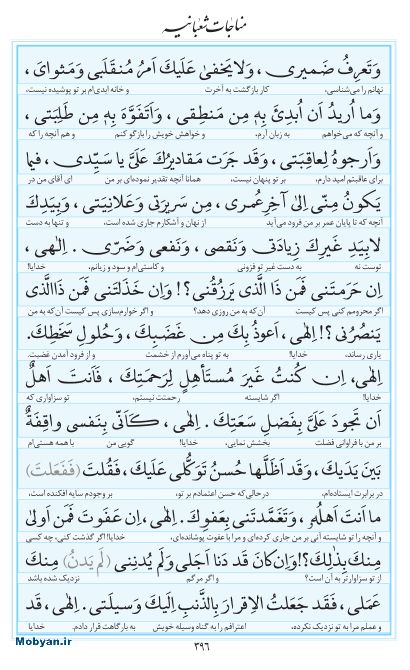 مناجات شعبانیه
وَتَعرِفُ ضَمیری، وَلایَخفیٰ عَلَیكَ اَمرُ مُنقَلَبی وَمَثوایَ،
نهانم را می‌شناسی، کار بازگشت به آخرت و خانه ابدی‌ام بر تو پوشیده نیست،
وَما اُریدُ اَن اُبدِئَ بِهِ مِن مَنطِقی، وَاَتَفَوَّهَ بِهِ مِن طَلِبَتی،
و آنچه که می‌خواهم به زبان آرم، و خواهش خویش را بازگو کنم و هم آنچه را که
وَاَرجوهُ لِعاقِبَتی، وَقَد جَرَت مَقادیرُكَ عَلَیَّ یا سَیِّدی، فیما
برای عاقبتم امید دارم، بر تو پنهان نیست، همانا آنچه تقدیر نموده‌ای بر من ای آقای من در
یَکونُ مِنّی اِلیٰ آخِرِ عُمری، مِن سَریرَتی وَعَلانِیَتی، وَبِیَدِكَ
آنچه که تا پایان عمر بر من فرود می‌آید از نهان و آشکارم جاری شده است، و تنها به دست
لابِیَدِ غَیرِكَ زِیادَتی وَنَقصی، وَنَفعی وَضَرّی. اِلٰهی،
توست نه به دست غیر تو فزونی و کاستی‌ام و سود و زیانم، خدایا!
اِن حَرَمتَنی فَمَن ذَا الَّذی یَرزُقُنی؟! وَاِن خَذَلتَنی فَمَن ذَاالَّذی
اگر محرومم کنی پس کیست آن که به من روزی دهد؟ و اگر خوارم‌سازی پس کیست آن‌که به من
یَنصُرُنی؟! اِلٰهی، اَعوذُ بِكَ مِن غَضَبِكَ، وَحُلولِ سَخَطِكَ.
یاری رساند، خدایا! به تو پناه می‌آورم از خشمت و از فرود آمدن غضبت.
اِلٰهی، اِن کُنتُ غَیرَ مُستَأهِلٍ لِرَحمَتِكَ، فَاَنتَ اَهلٌ
خدایا! اگر شایسته رحمتت نیستم، تو سزاواری که
اَن تَجودَ عَلَیَّ بِفَضلِ سَعَتِكَ. اِلٰهی، کَاَنّی بِنَفسی واقِفَةٌ
بر من با فراوانی فضلت بخشش نمایی، خدایا! گویی من با همه هستی‌ام
بَینَ یَدَیكَ، وَقَد اَظَلَّها حُسنُ تَوَکُّلی عَلَیكَ، فَقُلتَ (فَفَعَلتَ)
در برابرت ایستاده‌ام، درحالی‌که حسن اعتمادم بر تو، بر وجودم سایه افکنده است،
ما اَنتَ اَهلُهُ، وَتَغَمَّدتَنی بِعَفوِكَ. اِلٰهی، اِن عَفَوتَ فَمَن اَولیٰ
و آنچه را تو شایسته آنی بر من جاری کرده‌ای و مرا با عفوت پوشانده‌ای، خدایا!اگر گذشت کنی، چه کسی
مِنكَ بِذٰلِكَ؟! وَاِن کانَ قَد دَنا اَجَلی وَلَم یُدنِنی (لَم یَدنُ) مِنكَ
از تو سزاوارتر به آن است؟ و اگر مرگم نزدیک شده باشد
عَمَلی، فَقَد جَعَلتُ الاِقرارَ بِالذَّنبِ اِلَیكَ وَسیلَتی. اِلٰهی، قَد
و عملم مرا به تو نزدیک نکرده، اعترافم را به گناه وسیله خویش به بارگاهت قرار دادم. خدایا
۳۹۶
Mobyan.ir